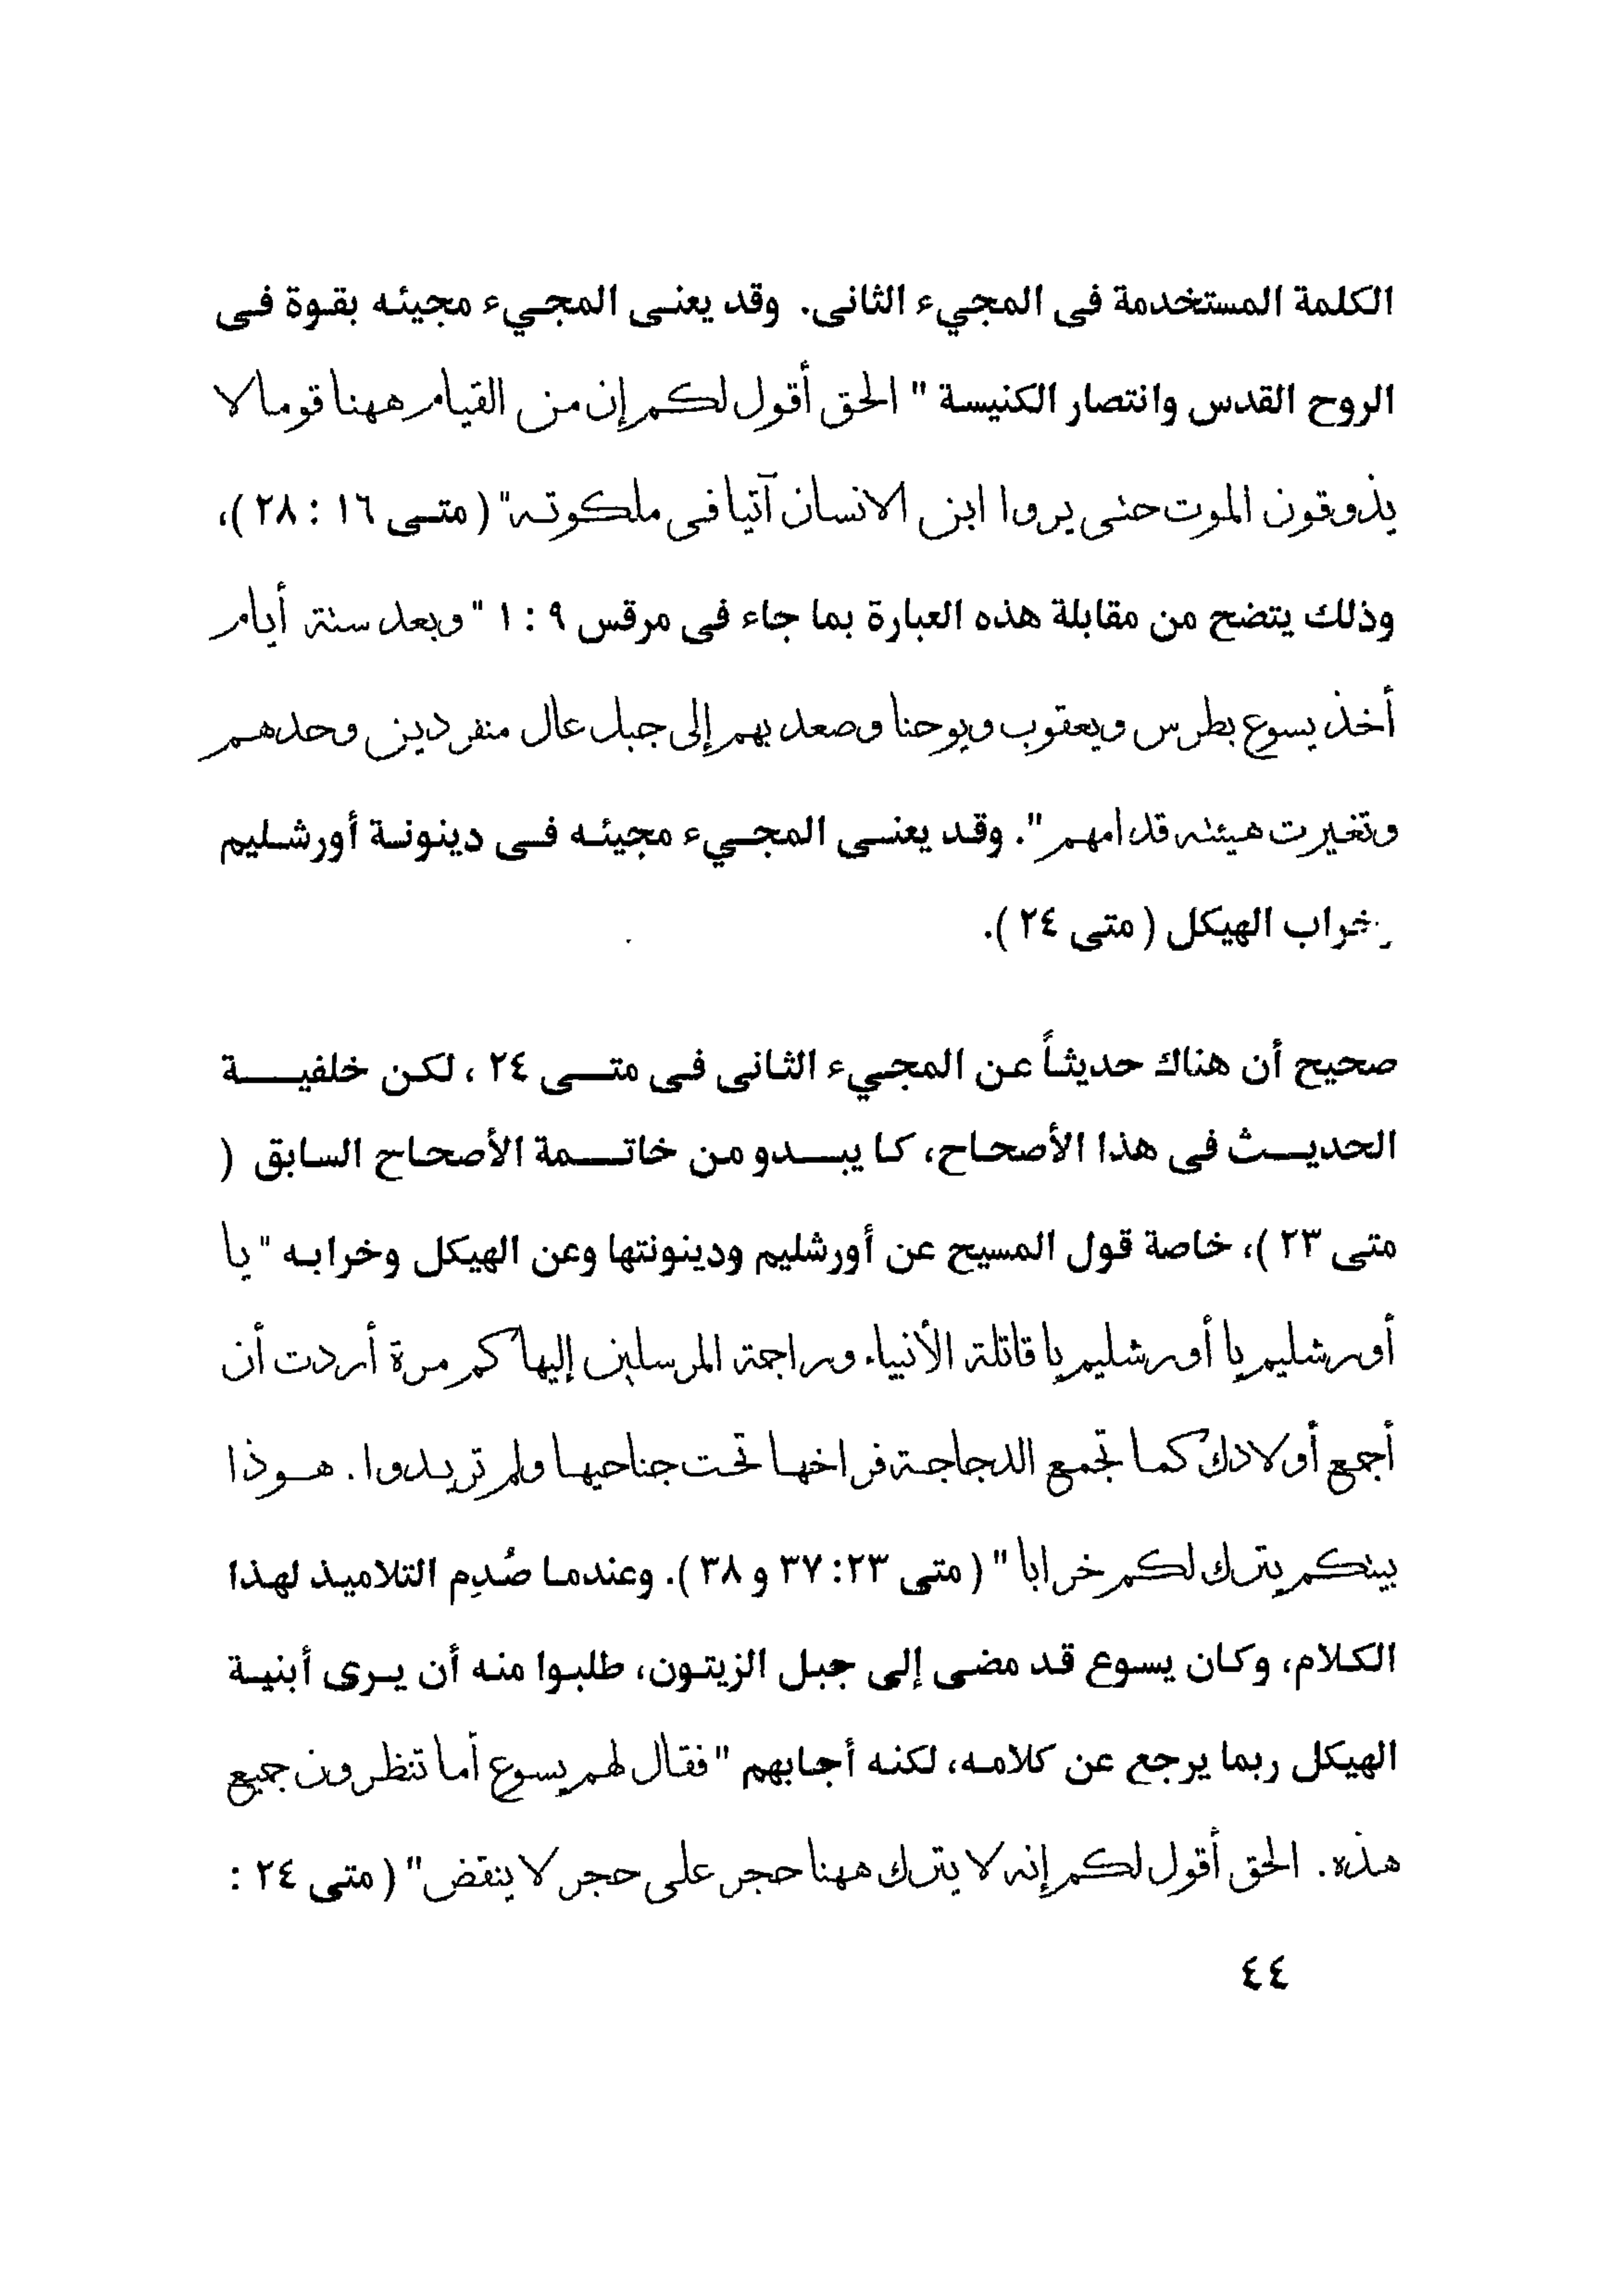 الكلمة المستخدمة فى المجيء الثانى. وقد يعنى المجيء مجيئه بقوة فى
الروح القدس وانتصار الكنيسة " الحق أقول لكم إن من القيام ههنا قوما لا
يذوقون الموت حتى يروا ابن الانسان آتيا فى ملكوته" ( متى ١٦ : ٢٨ )،
وذلك يتضح من مقابلة هذه العبارة بما جاء فى مرقس ٩ : ١ " وبعد ستة أيام
أخذ يسوع بطرس ويعقوب ويوحنا وصعد بهم إلى جبل عال منفردين وحدهم
وتغيرت هيئته قدامهم ". وقد يعنى المجيء مجيئه فى دينونة أورشليم
وخراب الهيكل ( متى ٢٤ ).
صحيح أن هناك حديثاً عن المجيء الثانى فى متى ٢٤ ، لكن خلفية
الحديث فى هذا الأصحاح، كا يبدو من خاتمة الأصحاح السابق (
متى ٢٣ )، خاصة قول المسيح عن أورشليم ودينونتها وعن الهيكل وخرابه " يا
أورشليم يا أورشليم يا قاتلة الأنبياء وراجمة المرسلين إليها كم مرة أردت أن
أجمع أولادك كما تجمع الدجاجة فراخها تحت جناحيها ولم تريدوا . هوذا
بيتكم يترك لكم خرابا " ( متى ٢٣: ٣٧ و ٣٨ ). وعندما صُدِم التلاميذ لهذا
الكلام، وكان يسوع قد مضى إلى جبل الزيتون، طلبوا منه أن يرى أبنية
الهيكل ربما يرجع عن كلامه، لكنه أجابهم " فقال لهم يسوع أما تنظرون جميع
هذه . الحق أقول لكم إنه لا يترك ههنا حجر على حجر لا ينقض" ( متى ٢٤ :
٤٤